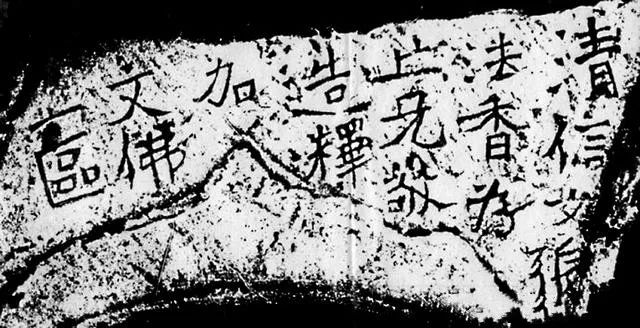 清信女張
法香為
亡兄敬
造釋
加
文佛
一區